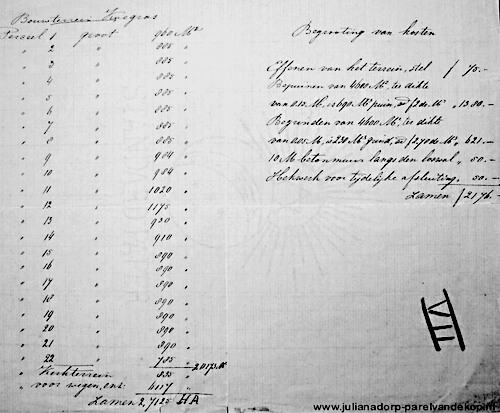 Bouwterrein Zwegras
Perceel 1 groot 960 M²
" 2 " 885 "
" 3 " 885 "
" 4 " 885 "
" 5 " 885 "
" 6 " 885 "
" 7 " 885 "
" 8 " 885 "
" 9 " 984 "
" 10 " 984 "
" 11 " 1020 "
" 12 " 1175 "
" 13 " 930 "
" 14 " 910 "
" 15 " 890 "
" 16 " 890 "
" 17 " 890 "
" 18 " 890 "
" 19 " 890 "
" 20 " 890 "
" 21 " 890 "
" 22 " 785 " 20173 M²
" Kerkterrein 835 "
" voor wegen, enz: 6117 "
Zamen 2,7125 HA
Begrooting van kosten
Effenen van het terrein, stel f 75.–
Bepuinen van 4600 M², ter dikte
van 0.15 M, is 690 M³ puin, à f 2 de M³ " 1380.–
Begrinden van 4600 M², ter dikte
van 0.05 M, is 230 M³ grind, à f 2.70 de M³ " 621.–
10 M betonmuur langs den " 50.–
Hekwerk voor tijdelijke afsluiting " 50.–
Zamen f 2176.–
VII
www.julianadorp-parelvandekop.nl